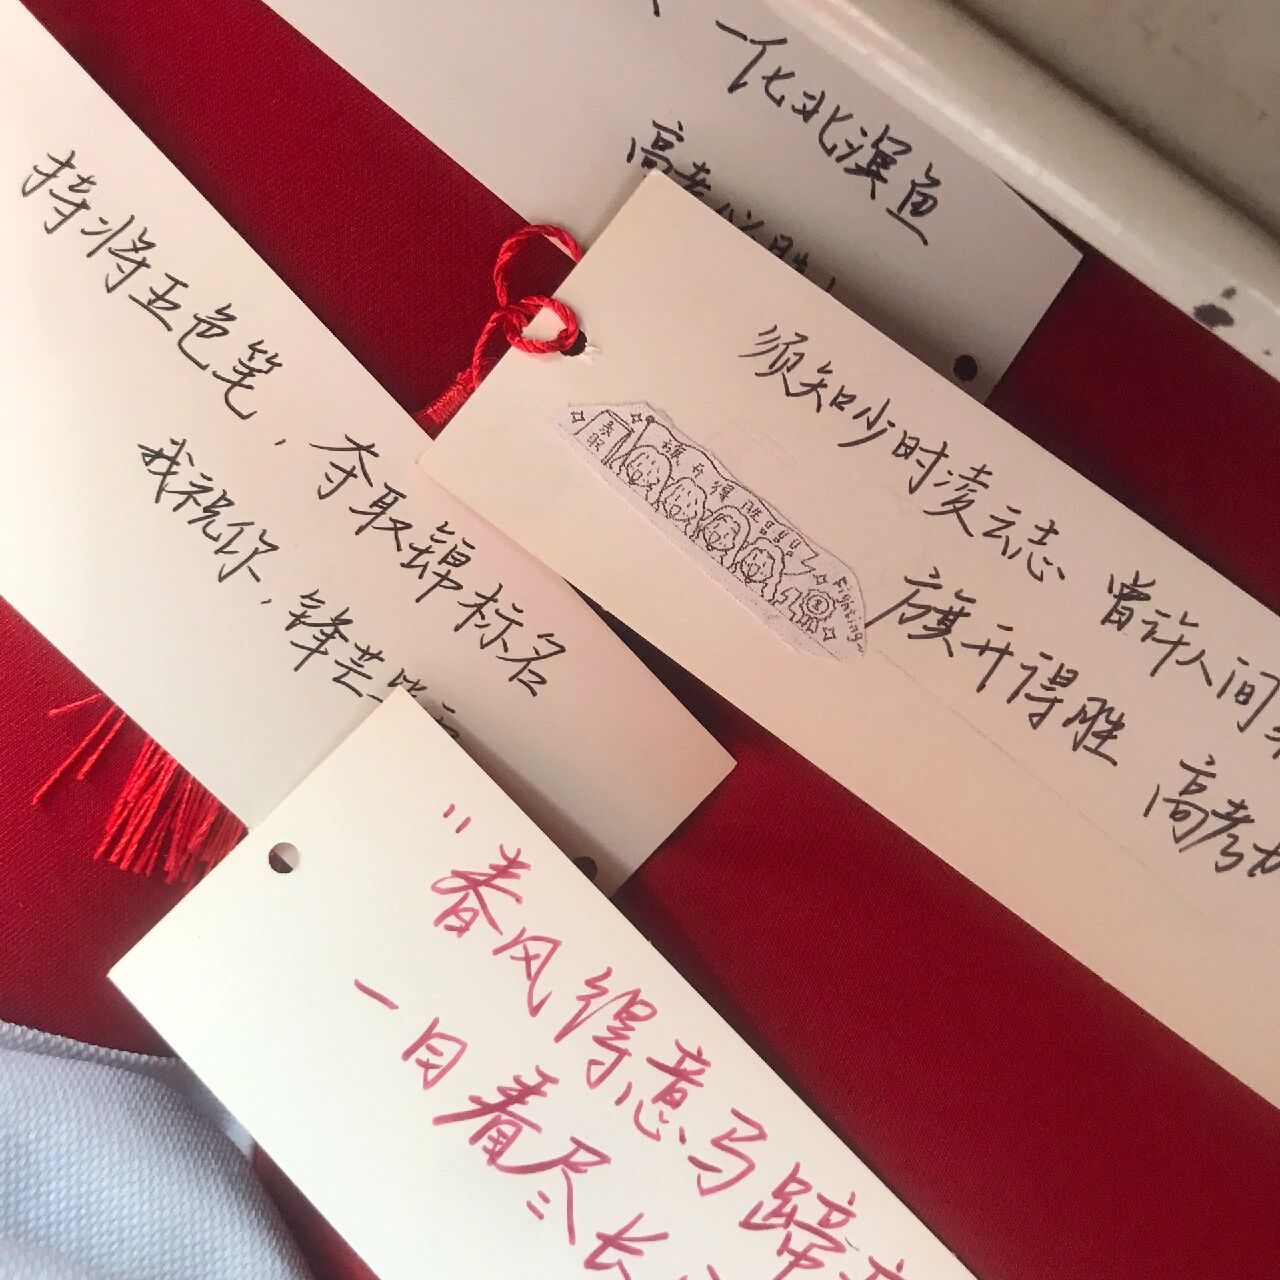 一化北溟鱼
高考必胜!
持将五色笔,夺取锦标名
我祝你,锋芒
须知少时凌云志 曾许人间
旗开得胜 高考
录取
旗开得胜!!!
Fighting~
"春风得意马蹄
一日看尽长